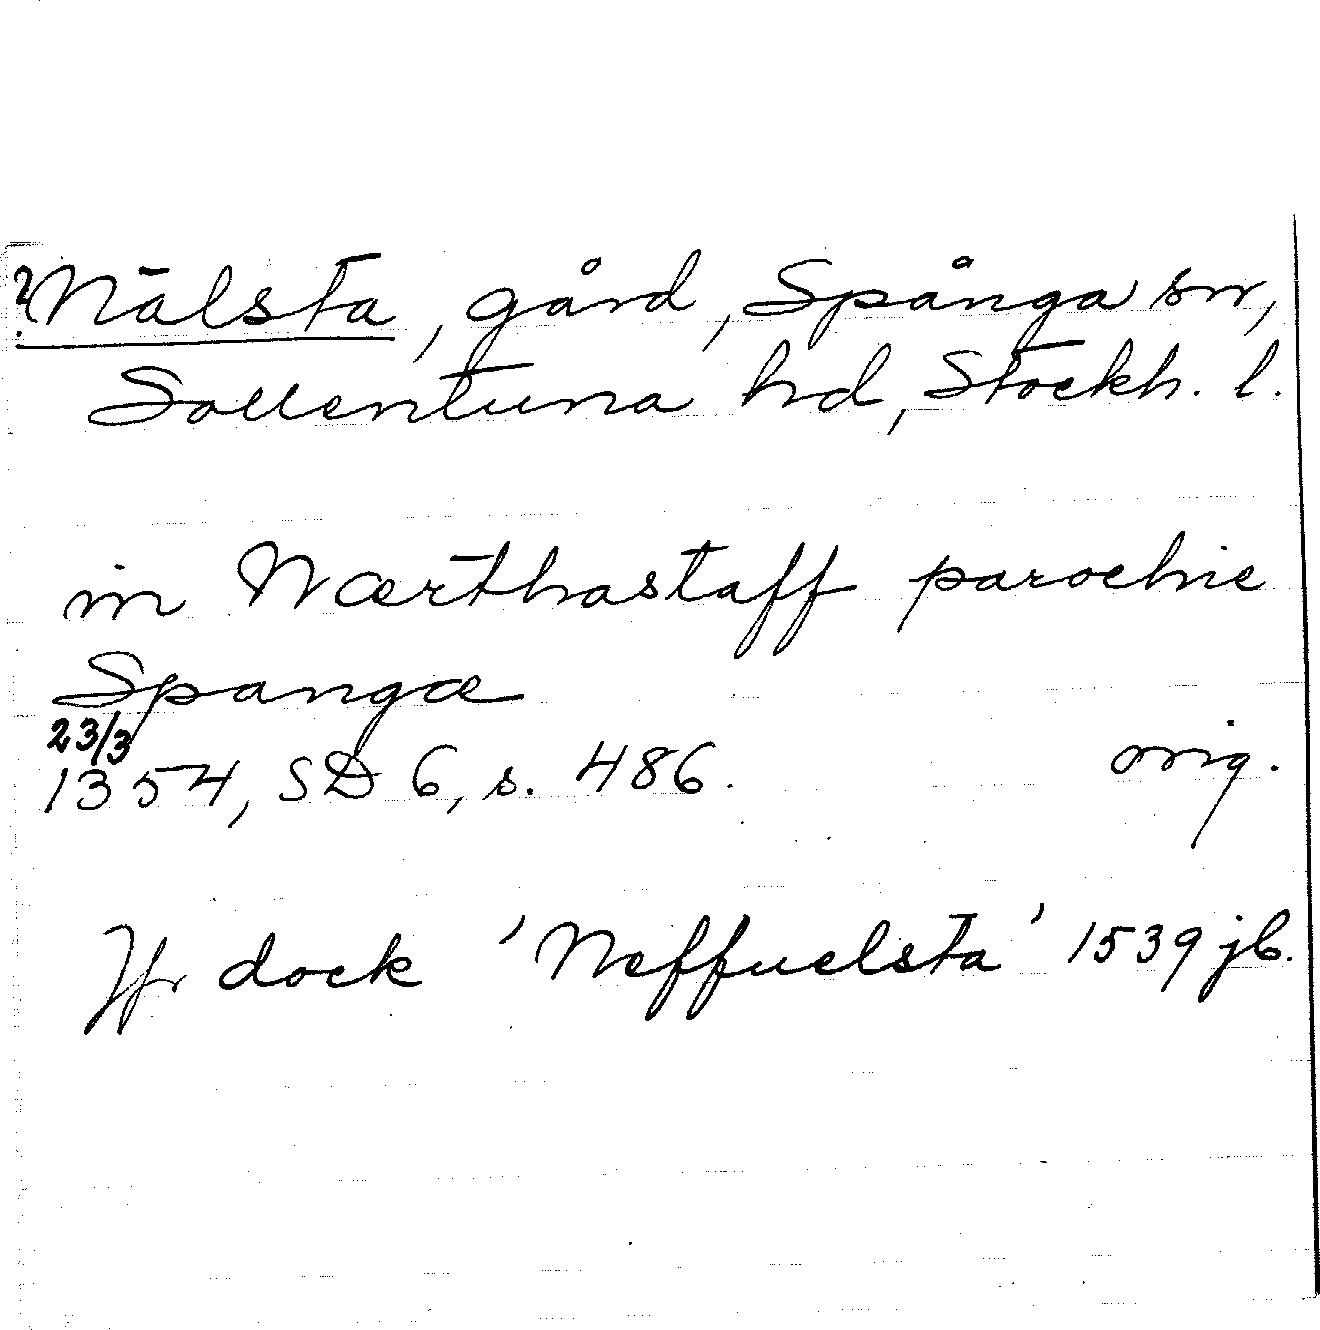 ? Nälsta, gård, Spånga sn,
Sollentuna hd, Stockh. l.
in Nærthastaff parochie
Spangæ
23/3
1354, SD 6, s. 486. orig.
Jfr dock 'Neffuelsta' 1539 jb.